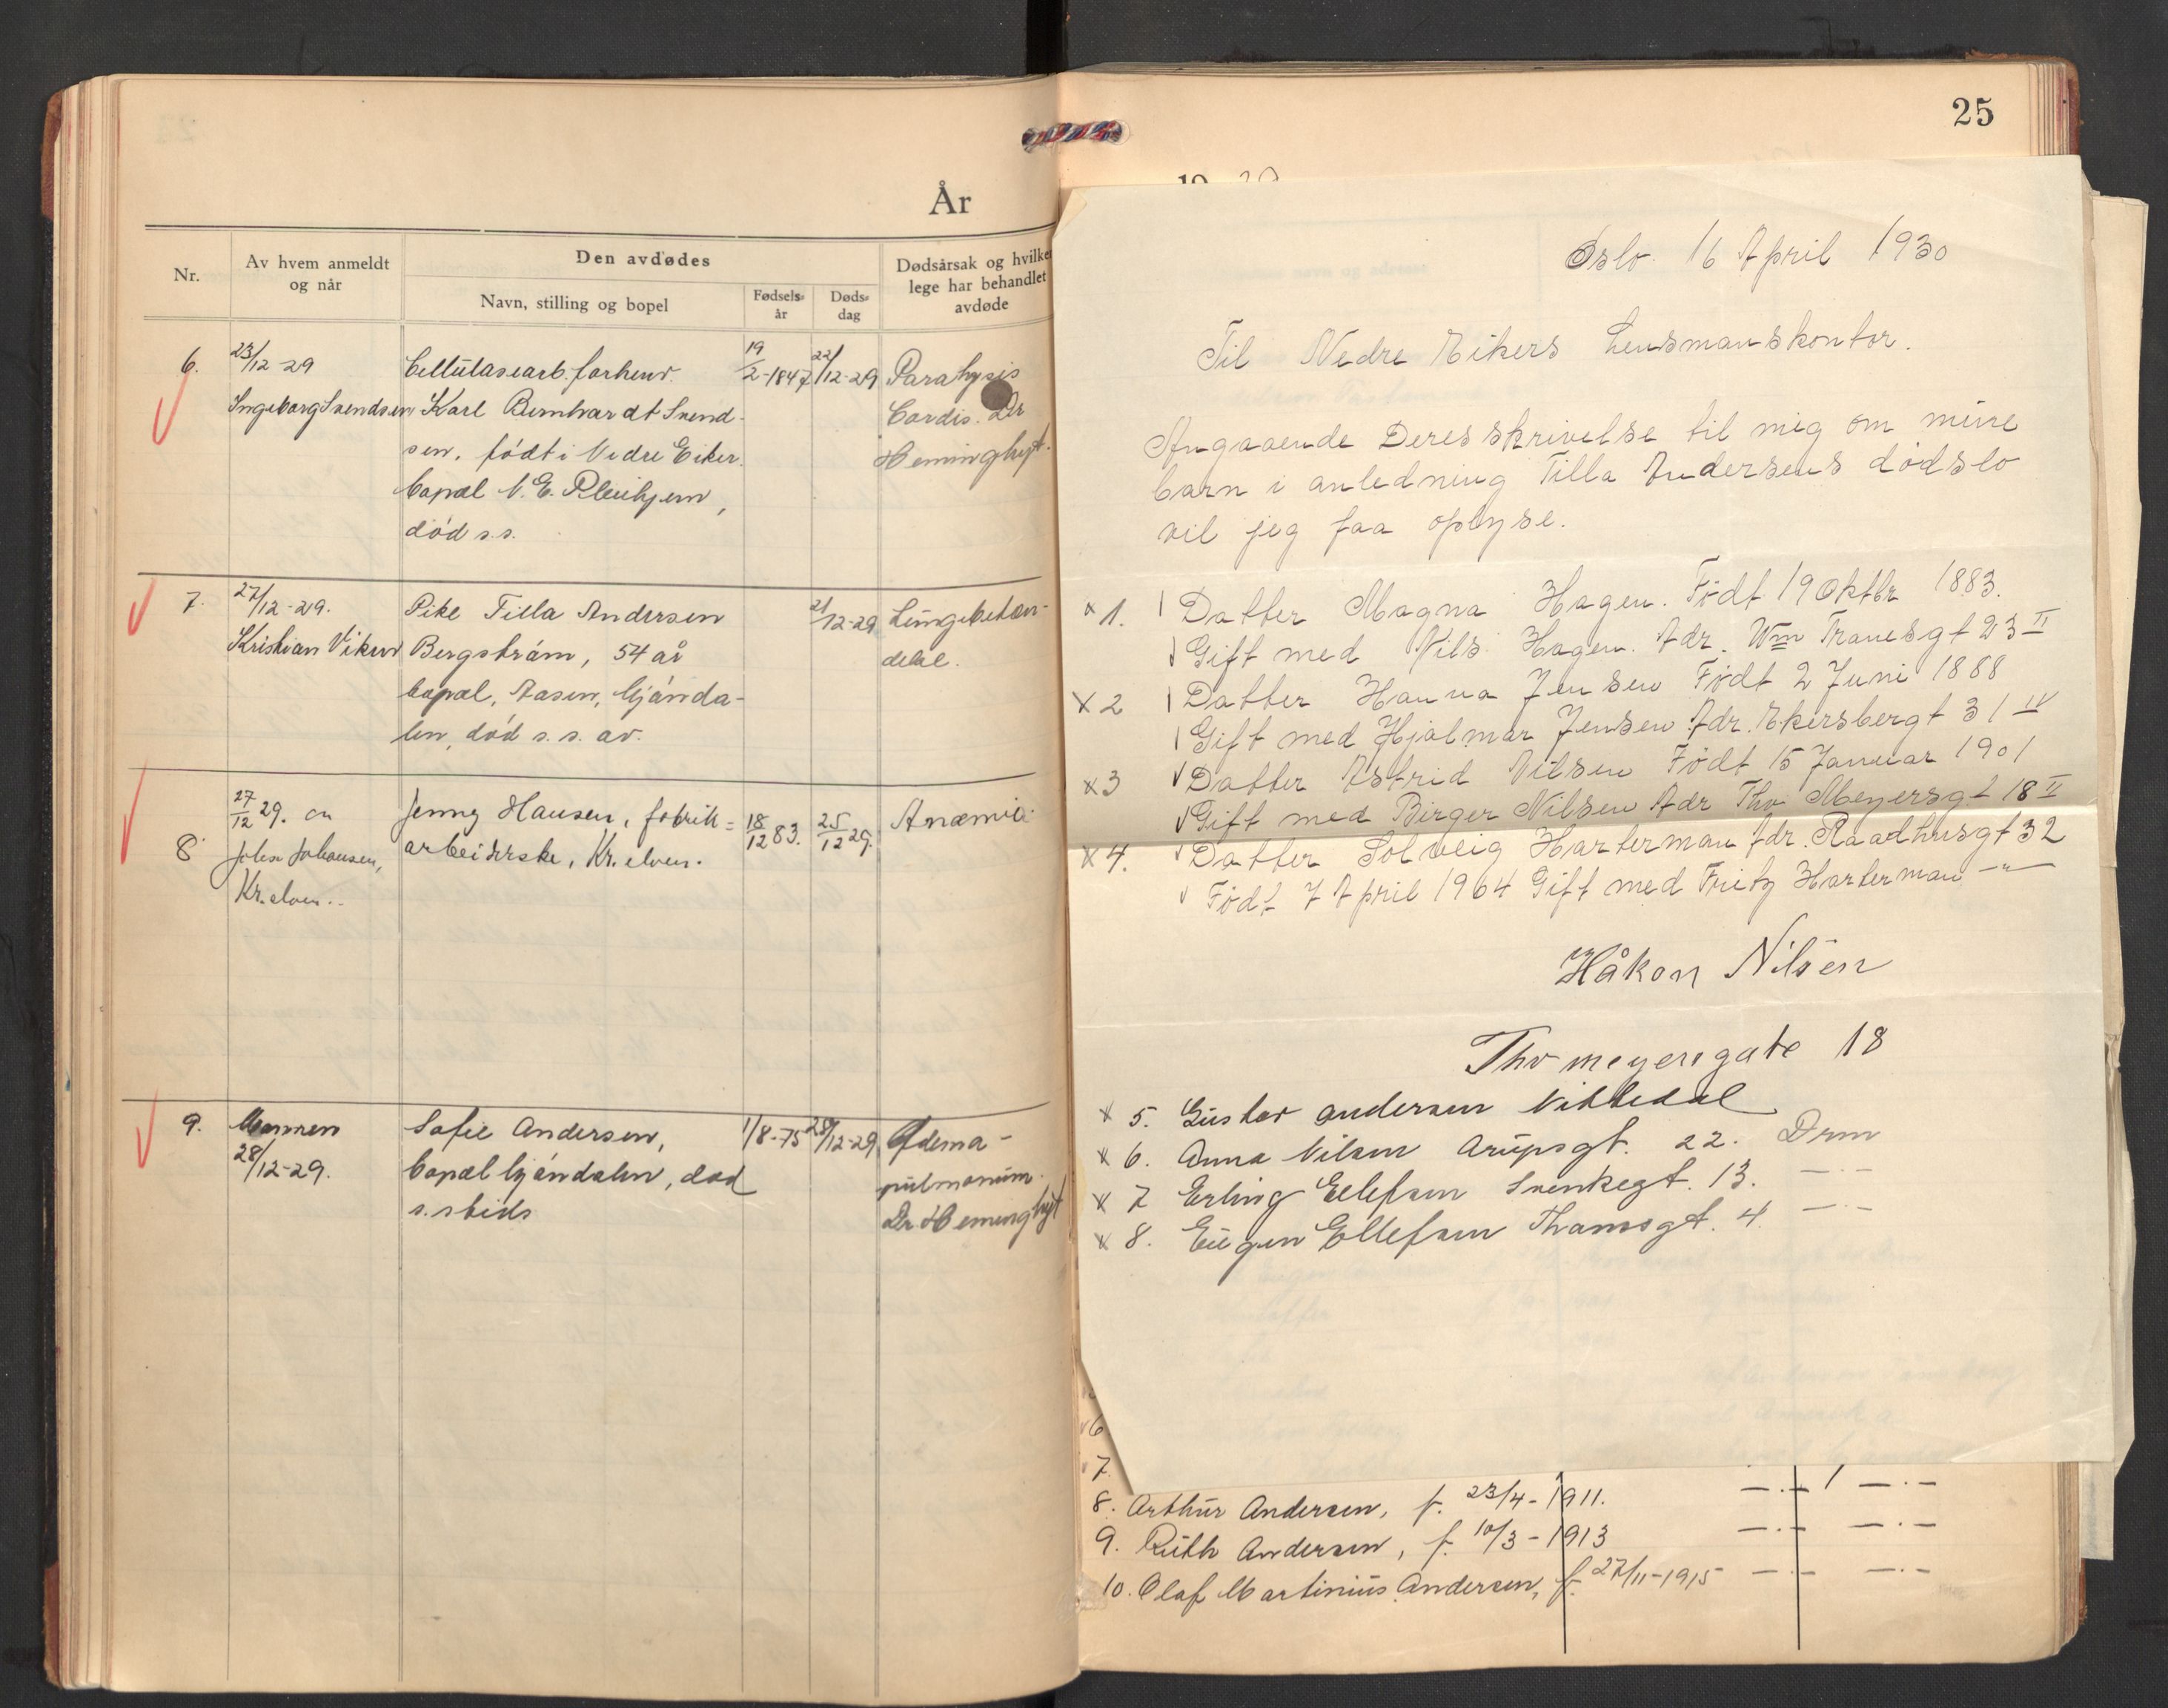 År
Nr.
Av hvem anmeldt
og når
Den avdødes
Navn, stilling og bopel
Fødsels-
år
Døds-
dag
Dødsårsak og hvilken
lege har behandlet
avdøde
6.
23/12-29
Ingeborg Svendsen
Cellulosearb. forhenv.
Karl Bernhardt Svend-
sen, født i Nedre Eiker.
bopæl N. E. Pleiehjem,
død s.s.
19/2-1847
22/12-29
Paralysis
Cordis. Dr
Heminghyt.
7.
27/12-29.
Kristian Viken
Pike Tilla Andersen
Bergstrøm, 54 år
bopæl, Aasen, Mjønda-
len, død s. s. av.
21/12-29
Lungebeten-
delse.
8
27/12 29. av
Johan Johansen,
Kr.elven..
Jenny Hansen, fabrik=
arbeiderske, Kr.elven.
18/12 83.
25/12 29.
Anæmia.
9.
Mannen
28/12-29.
Sofie Andersen,
bopæl Mjøndalen, død
s. steds
1/8-75
28/12-29
Ødema-
pulmonum.
Dr Heminghyt
25
Oslo. 16 April 1930
Til Nedre Eikers Lensmanskontor.
Angaaende Deres skrivelse til mig om mine
barn i anledning Tilla Andersens dødsbo
vil jeg faa oplyse.
x 1. Datter Magna Hagen. Født 19 Oktbr 1883.
Gift med Nils Hagen. Adr. Wm Tranesgt 23 II
x 2 Datter Hanna Jensen Født 2 Juni 1888
Gift med Hjalmar Jensen Adr. Ekersbergt 31 IV
x 3 Datter Astrid Nilsen Født 15 Januar 1901
Gift med Birger Nilsen Adr Thv Meyersgt 18 II
x 4. Datter Solveig Harterman Adr. Raadhusgt 32
Født 7 April 1904 Gift med Fritz Harterman —"—
Håkon Nilsen
Thv meyersgate 18
x 5. Gustav Andersen Nittedal
x 6. Anna Nilsen Arupsgt. 22. Drm
x 7 Erling Ellefsen Svenkegt. 13. —·—
x 8. Eugen Ellefsen Thamsgt. 4. —·—
6
7
8. Arthur Andersen, f. 23/4-1911. —·— 1 —·—
9. Ruth Andersen, f. 10/3-1913 —·— —·—
10. Olaf Martinius Andersen, f. 27/11-1915 —·— —·—